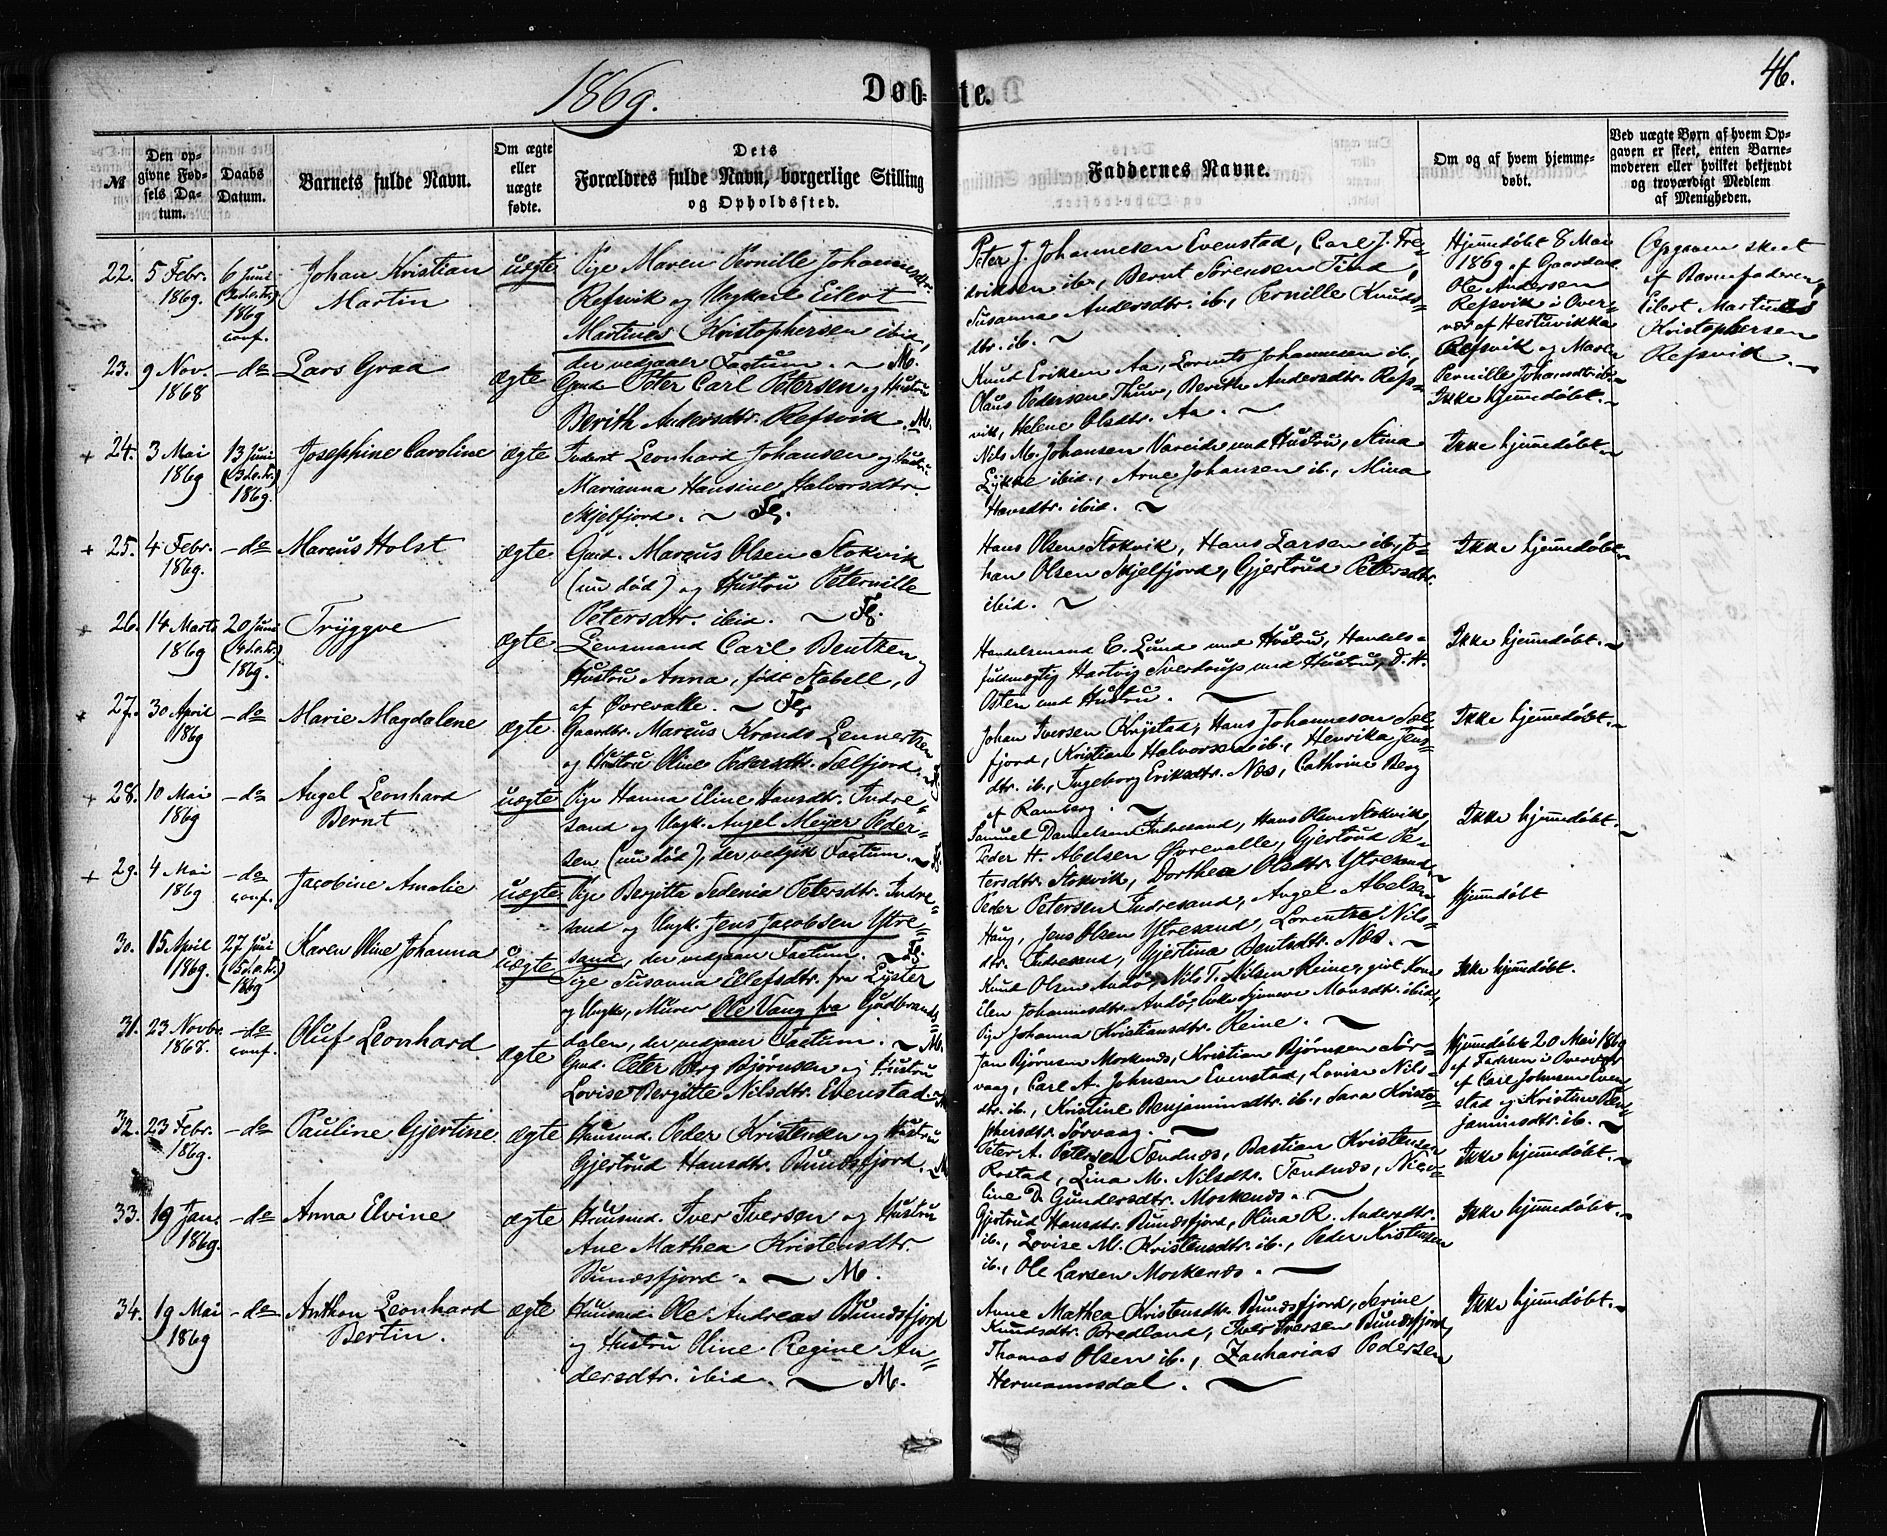 1869.
Døbte.
46.
№
Den opgivne Fødsels Datum.
Daabs Datum.
Barnets fulde Navn.
Om ægte eller uægte fødte.
Dets Forældres fulde Navn, borgerlige Stilling og Opholdssted.
Faddernes Navne.
Om og af hvem hjemmedøbt.
Ved uægte Børn af hvem Opgaven er skeet, enten Barnemoderen eller hvilket bekjendt og troværdigt Medlem af Menigheden.
22. 5 Febr. 1869. 6 Juni (2 S. e. Tr.) 1869 conf.
Johan Kristian Martin
uægte
Pige Maren Pernille Johannesdtr.
Refsvik og Ungkarl Eilert
Martines Kristophersen ibid,
der vedgaaer Factum. M.
Peter J. Johannesen Evenstad, Carl J. Fre-
driksen ib., Bernt Sørensen Tind,
Susanna Andersdtr. ib., Pernille Knuds-
dtr. ib.
Hjemmedøbt 8 Mai
1869 af Gaardmd.
Ole Andersen
Refsvik i Over-
vær af
Refsvik og Maren
Pernille Johansdtr. ib.
Opgaven skeet
af Barnefaderen,
Eilert Martines
Kristophersen
Refsvik.
23. 9 Nov. 1868 do
Lars Grad
ægte
Gmd. Peter Carl Petersen og Hustru
Berith Andersdtr. Refsvik. M.
Knud Eriksen Aa, Lorents Johannesen ib.,
Olaus Pedersen Thuv, Berith Andersdtr. Refs-
vik, Helene Olsdtr. Aa.
Ikke hjemmedøbt.
+ 24. 3 Mai 1869 13 Juni (3 S. e. Tr.) 1869.
Josephine Caroline
ægte
Inderst Leonhard Johansen og Hustru
Marianna Hansine Halvorsdtr.
Skjelfjord. Fl.
Nils M. Johansen Vareide med Hustru, Stina
Lykke ibid., Arne Johansen ib., Mina
Hansdtr. ibid.
Ikke hjemmedøbt
+ 25. 4 Febr. 1869. do
Marcus Holst
ægte
Gaard. Marcus Olsen Stokvik
(nu død) og Hustru Peternille
Petersdtr. ibid. Fl.
Hans Olsen Stokvik, Hans Larsen ib., Jo-
han Olsen Skjelfjord, Gjertrud Petersdtr.
ibid.
Ikke hjemmedøbt
+ 26. 14 Marts 1869 20 Juni (4 S. e. Tr.) 1869.
Tryggve
ægte
Lensmand Carl Bentzen,
Hustru Anna, født Stabell,
af Øvrevalle. Fl.
Handelsmand C. Lund med Hustru, Handels-
fuldmægtig Hartvig Sverdrup med Hustru, D. H.
Osten med Hustru.
Ikke hjemmedøbt.
+ 27. 30 April 1869 do
Marie Magdalene
ægte
Gaardbr. Marcus Krondo Lennertsen
og Hustru Oline Pedersdtr. Sælfjord. Fl.
Johan Iversen Krystad, Hans Johannesen Sæl-
fjord, Kristian Halvorsen ib., Henrika Jens-
dtr. ib., Ingeborg Eriksdtr. Næs, Cathrine Berg
af Ramberg.
Ikke hjemmedøbt.
+ 28. 10 Mai 1869 do
Angel Leonhard Bernt
uægte
Pige Hanna Eline Hansdtr. Indre-
sand og Ungk. Angel Meyer Peder-
sen (nu død), der vedgik Factum. Fl.
Samuel Danielsen Indresand, Hans Olsen Stokvik,
Peder H. Abelsen Øvrevalle, Gjertrud Pe-
tersdtr. Stokvik, Dorthea Olsdtr. Ytresand.
Ikke hjemmedøbt.
+ 29. 4 Mai 1869 do conf.
Jacobine Amalie
uægte
Pige Bergitta Sedenia Petersdtr. Indre-
sand og Ungk. Jens Jacobsen Ytre-
sand, der vedgaar Factum. Fl.
Peder Petersen Indresand, Angel Abelsen
Haug, Jens Olsen Ytresand, Lorentze Nils-
dtr. Indresand, Gjertina Bentsdtr. Næs.
Hjemmedøbt
30. 15 April 1869. 27 Juni (5 S. e. Tr.) 1869
Karen Oline Johanna
uægte
Pige Susanna Ellefsdtr. fra Lyster
og Ungk., Murer Ole Vang fra Gudbrands-
dalen, der vedgaar Factum. M.
Knud Olsen Andø, Nils T. Nilsen Reine, gift Kone
Elen Johannisdtr. Andø, Monsdtr. ibid.,
Pige Johanna Kristiansdtr. Reine.
Ikke hjemmedøbt.
31. 23 Novbr. 1868. do conf.
Oluf Leonhard
ægte
Gmd. Peter Berg Bjørnsen og Hustru
Lovise Bergitte Nilsdtr. Evenstad. M
Jan Bjørnsen Moskenæs, Kristian Bjørnsen Sør-
vaag, Carl A. Johnsen Evenstad, Lovise Nils-
dtr. ib., Kristine Benjaminsdtr. ib., Sara Kristo-
phersdtr. Sørvaag.
Hjemmedøbt 20 Mai 1869
af Faderen i Overvær
af Carl Johnsen Even-
stad og Kristine Ben-
jaminsdtr. ib.
32. 23 Febr. 1869. do
Pauline Gjertine
ægte
Huusmd. Peder Kristensen og Hustru
Gjertrud Hansdtr. Bundsfjord. M
Peter A. Petersen Tændnæs, Bastian Kristensen
Rostad, Lina M. Nilsdtr. Tændnæs, Nico-
line D. Gundersdtr. Moskenæs.
Ikke hjemmedøbt.
33. 19 Jan. 1869. do
Anna Elvine
ægte
Huusmd. Iver Iversen og Hustru
Ane Mathea Kristensdtr.
Bundsfjord. M.
Gjertrud Hansdtr. Bundsfjord, Olina R. Andersdtr.
ib., Lovise M. Kristensdtr. ib., Peder Kristensen
ib., Ole Larsen Moskenæs.
Ikke hjemmedøbt.
34. 19 Mai 1869 do
Anthon Leonhard Bertin.
ægte
Huusmd. Ole Andreas Bundsfjord
og Hustru Oline Regine An-
dersdtr. ibid. M.
Anne Mathea Kristensdtr. Bundsfjord, Serine
Knudsdtr. Bredland, Iver Iversen Bundsfjord,
Thomas Olsen ib., Zacharias Pedersen
Hermannsdal.
Ikke hjemmedøbt.